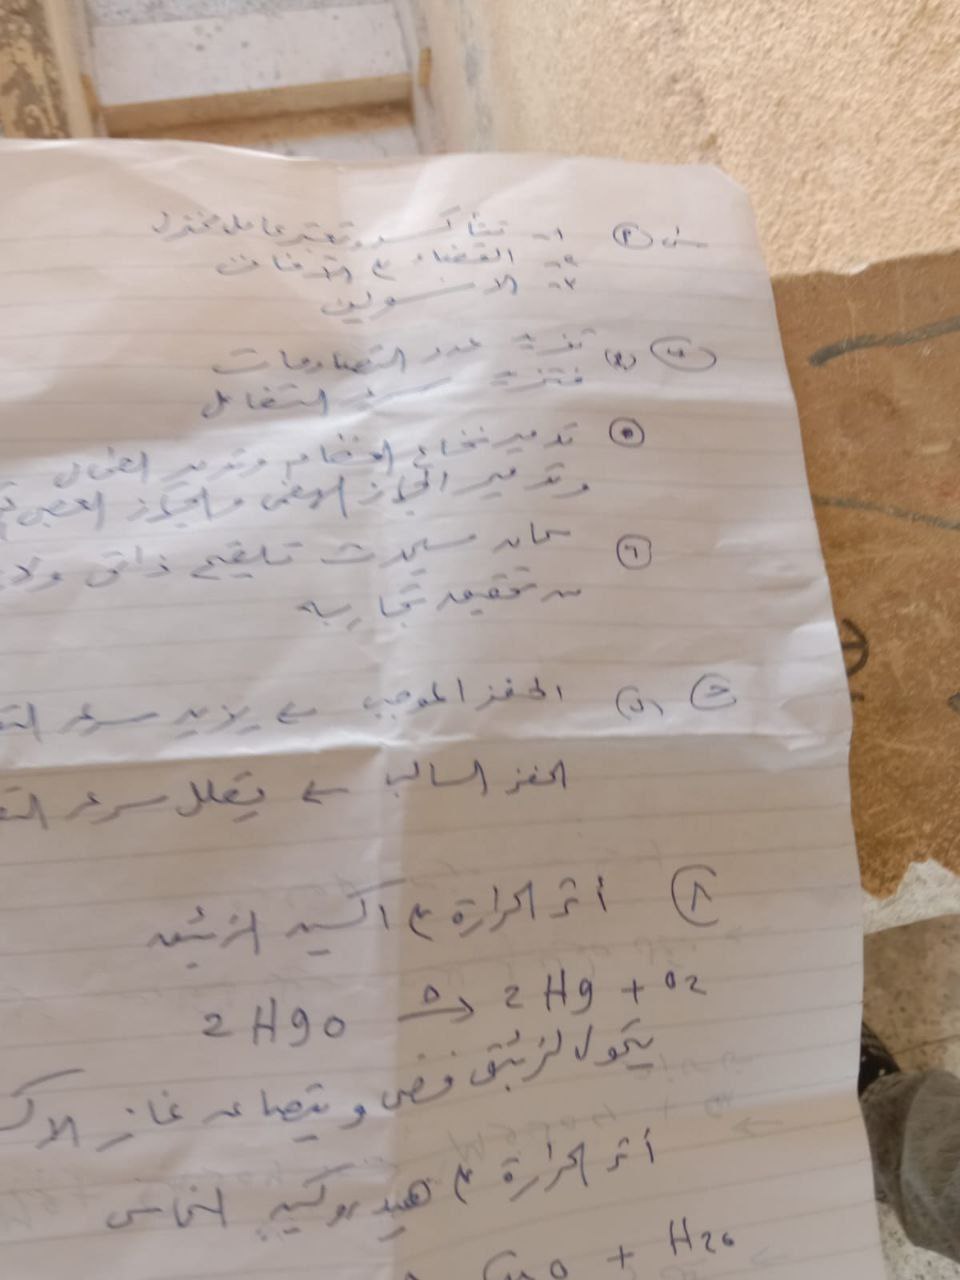 س ② ١- تتأكسد وتعتبر عامل مختزل
٢- القضاء ع الآفات
٣- الانسولين
تزيد عدد التصادمات
فتزيد سرعة التفاعل
تدمير نخاع العظام وتدمير الطحال
وتدمير الجهاز الهضمي والجهاز العصبي
٦ كان سيحدث تلقيح ذاتي ولا
تحقيق تجاربه
الحفز الموجب ← يزيد سرعة
الحفز السالب ← يقلل سرعة
أثر الحرارة ع اكسيد الزئبق
2HgO —Δ→ 2Hg + O2
يتكون الزئبق فضي ويتصاعد غاز
أثر الحرارة ع هيدروكسيد النحاس
CuO + H2O